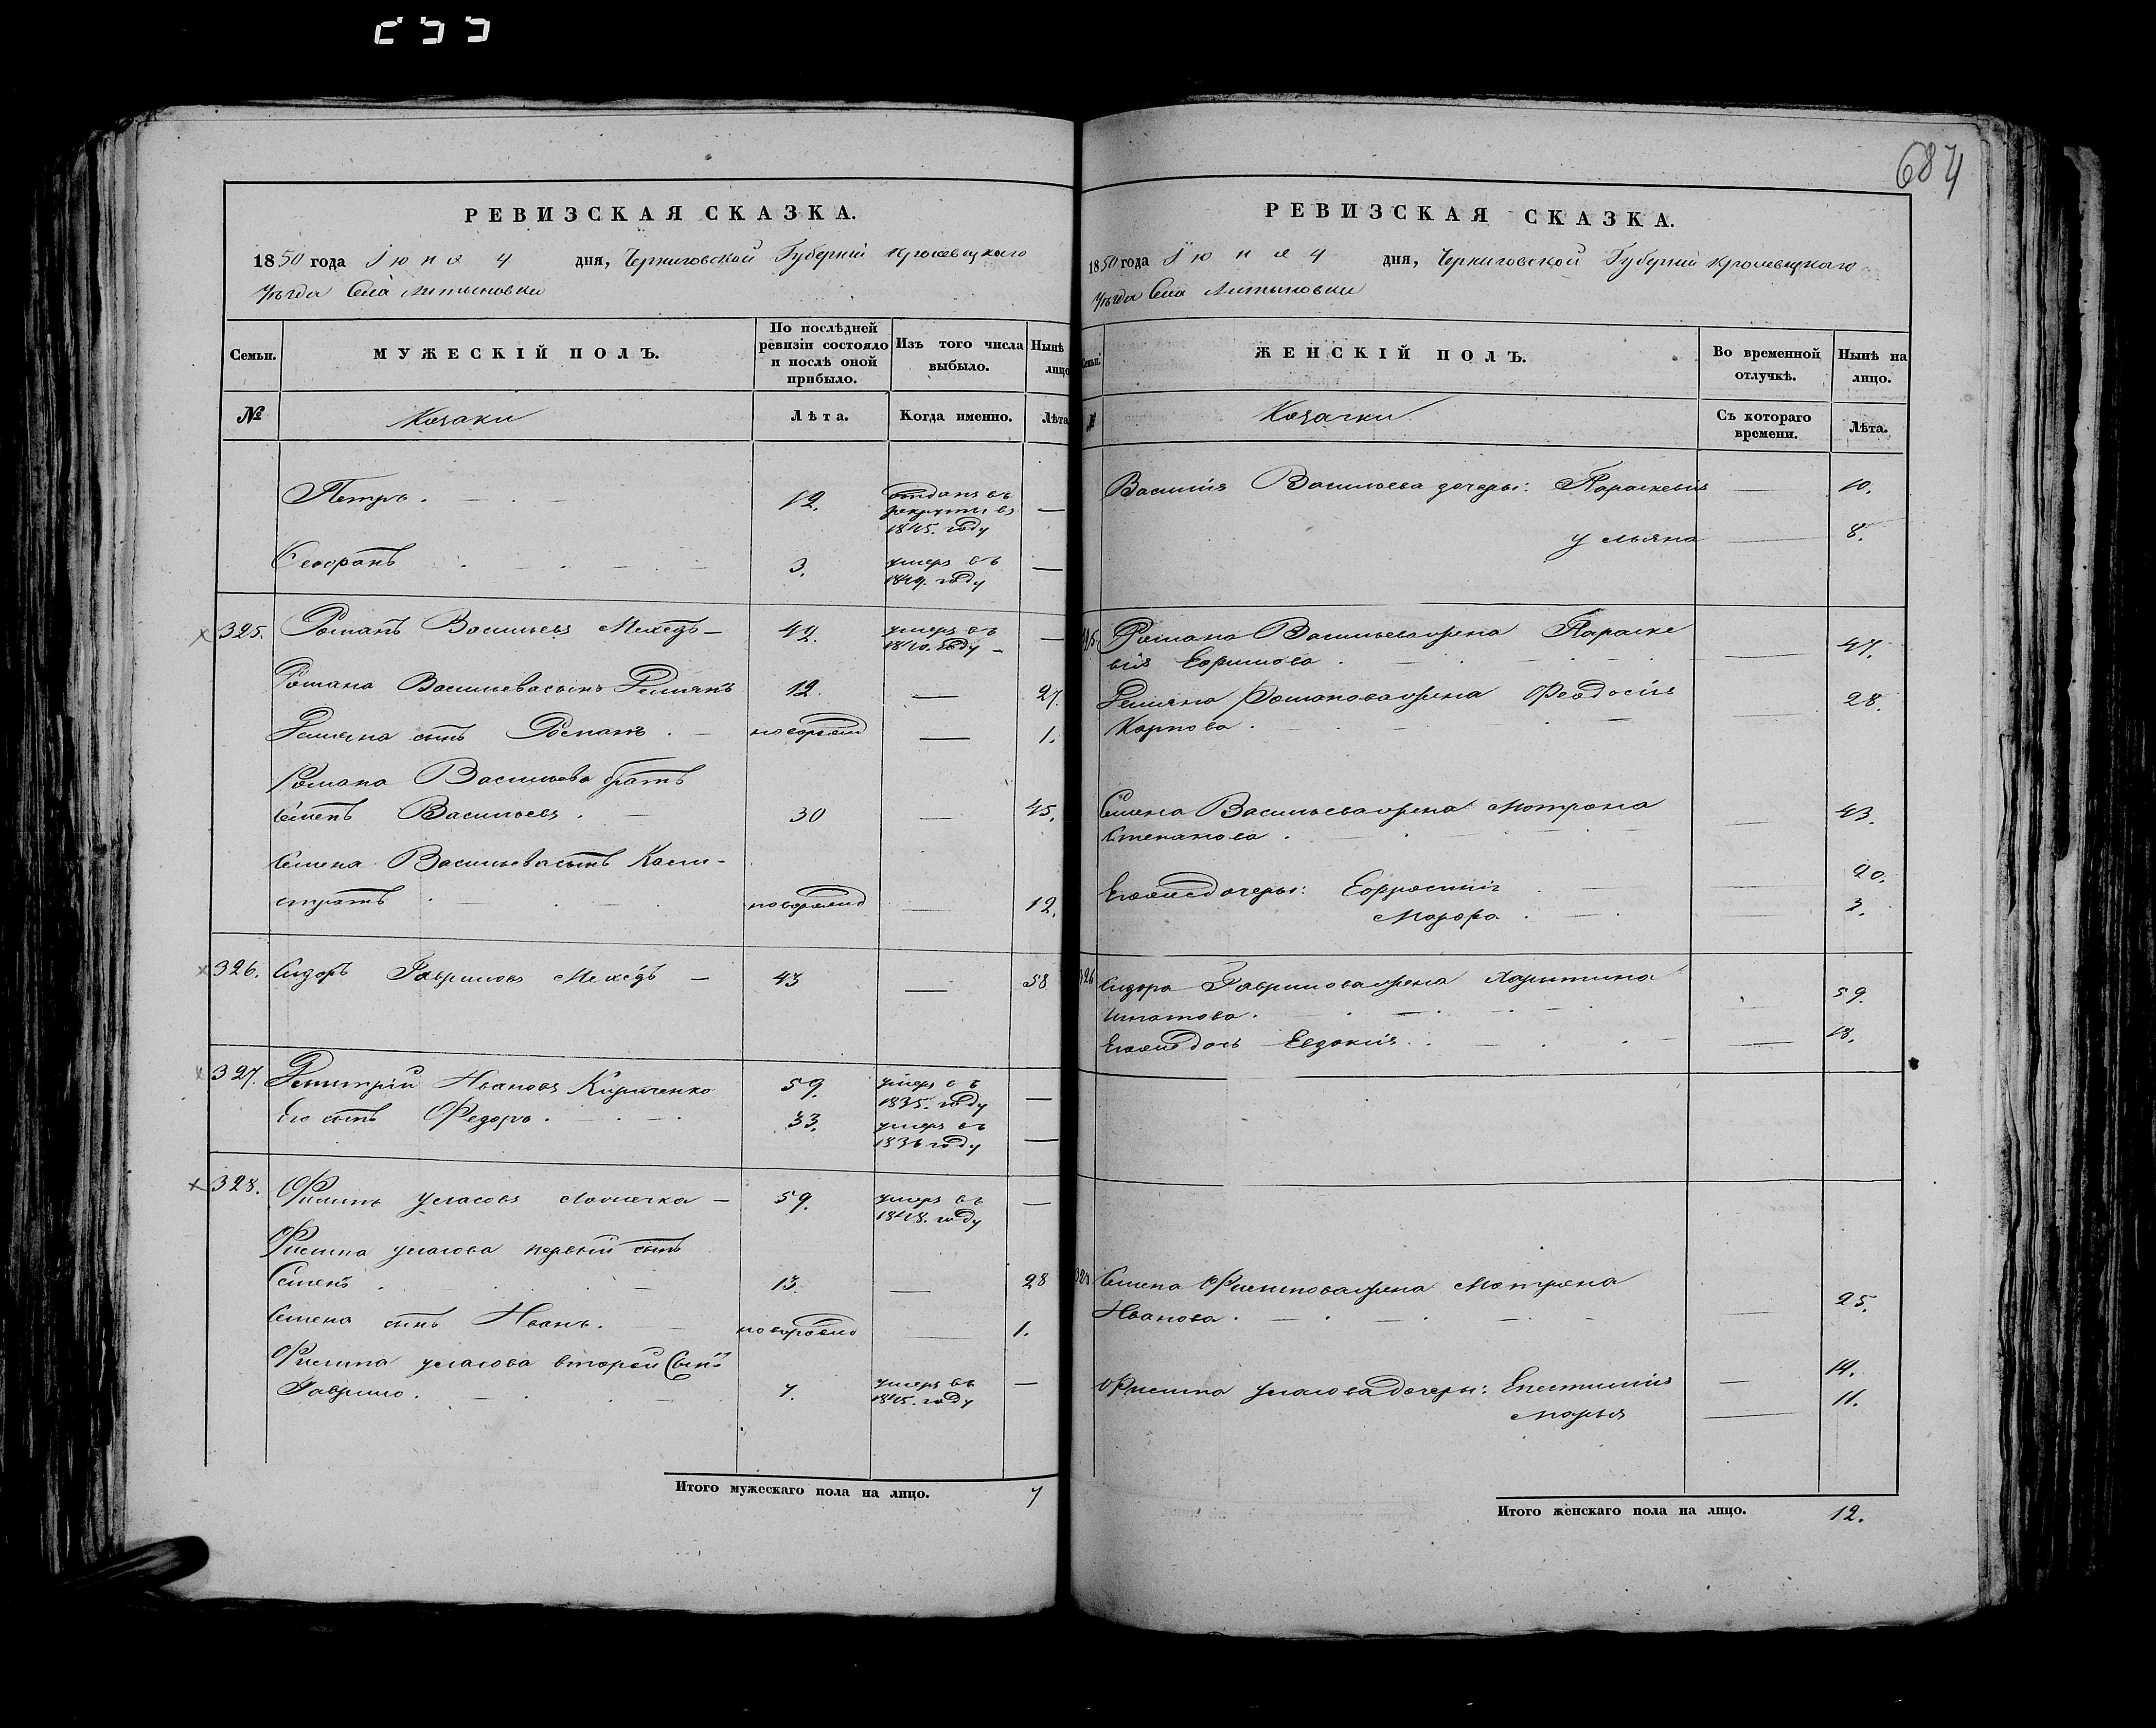 684
РЕВИЗСКАЯ СКАЗКА.
1850 года Июня 4 дня, Черниговской Губерніи Кролевецкаго
Уѣзда Села
МУЖЕСКІЙ ПОЛЪ.
Семьи.
По послѣдней ревизіи состояло и послѣ оной прибыло.
Изъ того числа выбыло.
Нынѣ лицо
№
Козаки
Лѣта.
Когда именно.
Лѣта
Петръ 12. отданъ въ рекруты въ 1845. году —
3. умеръ въ 1849. году —
325. Романъ Васильевъ 42. умеръ въ 1840. году —
Романа Васильева сынъ Демьянъ 12. — 27.
Демьяна сынъ Романъ новорожд — 1.
Романа Васильева братъ
Семенъ Васильевъ 30 — 45.
Семена Васильева сынъ Кали-
стратъ новорожд — 12.
326. Сидоръ Гавриловъ 43 — 58
327. Дмитрій Ивановъ Кириченко 59. умеръ въ 1835. году —
Его сынъ Федоръ 33. умеръ въ 1836 году —
328. Филипъ Уласовъ 59. умеръ въ 1848. году —
Филипа Уласова первый сынъ
Семенъ 13. — 28
Семена сынъ Иванъ новорожд — 1.
Филипа Уласова второй сынъ
Гаврило 7. умеръ въ 1845. году —
Итого мужескаго пола на лицо. 7
РЕВИЗСКАЯ СКАЗКА.
1850 года Июня 4 дня, Черниговской Губерніи Кролевецкаго
Уѣзда Села
Семьи.
ЖЕНСКІЙ ПОЛЪ.
Во временной отлучкѣ.
Нынѣ на лицо.
№
Козачки
Съ котораго времени.
Лѣта.
Василія Васильева дочери: Параскевія — 10.
Ульяна — 8.
325 Романа Васильева жена Параске
вія Ефимова — 47.
Демьяна Романова жена Феодосія
Карпова — 28.
Семена Васильева жена Мотрона
Степанова — 43.
Его же дочери: Ефросинія — 20.
3.
326 Сидора Гаврилова жена Харитина
Игнатова 59.
Его же дочь Евдокія — 18.
328 Семена Филипова жена Мотрона
Иванова — 25.
Филипа Уласова дочери: Епестимія — 14.
Марья — 11.
Итого женскаго пола на лицо. 12.